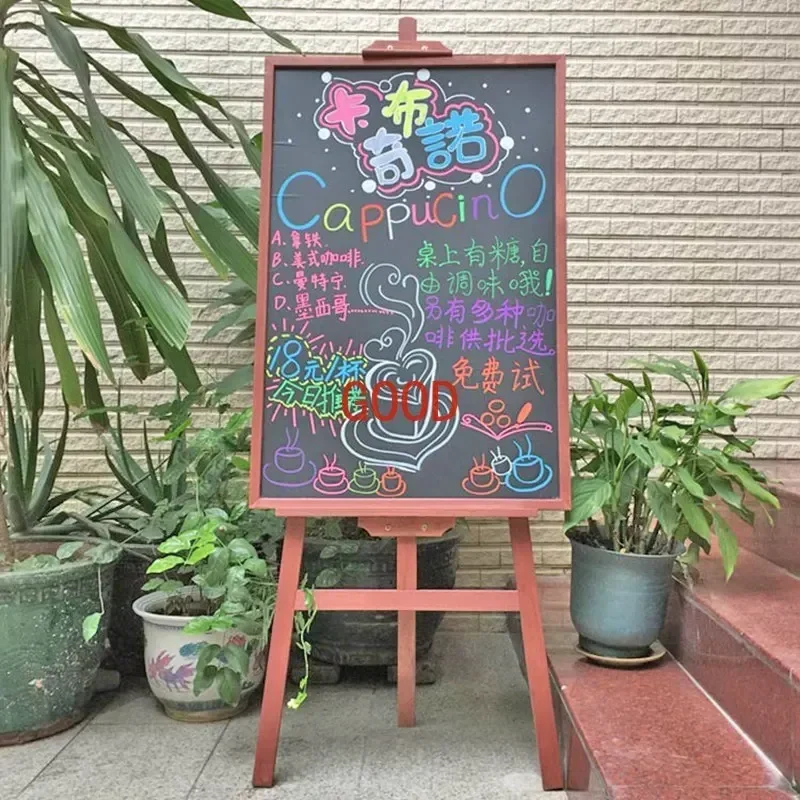 卡布
奇諾
CappucinO
A.拿铁.
B.美式咖啡.
C.曼特宁
D.墨西哥......
桌上有糖,自
由调味哦!
另有多种咖
啡供批选。
18元/杯
今日推荐
免费试
GOOD